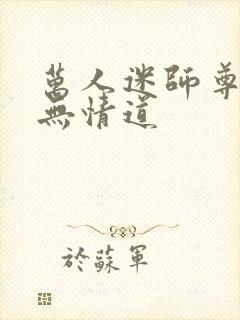 萬人迷師尊
無情道
於蘇軍